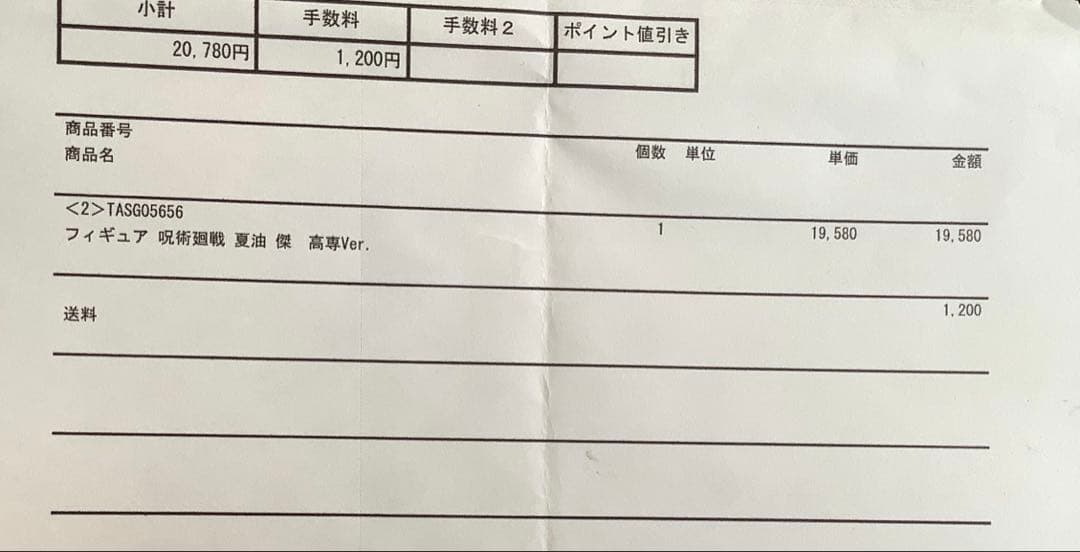 小計 手数料 手数料2 ポイント値引き
20,780円 1,200円
商品番号
商品名 個数 単位 単価 金額
<2>TASG05656
フィギュア 呪術廻戦 夏油 傑 高専Ver. 1 19,580 19,580
送料 1,200